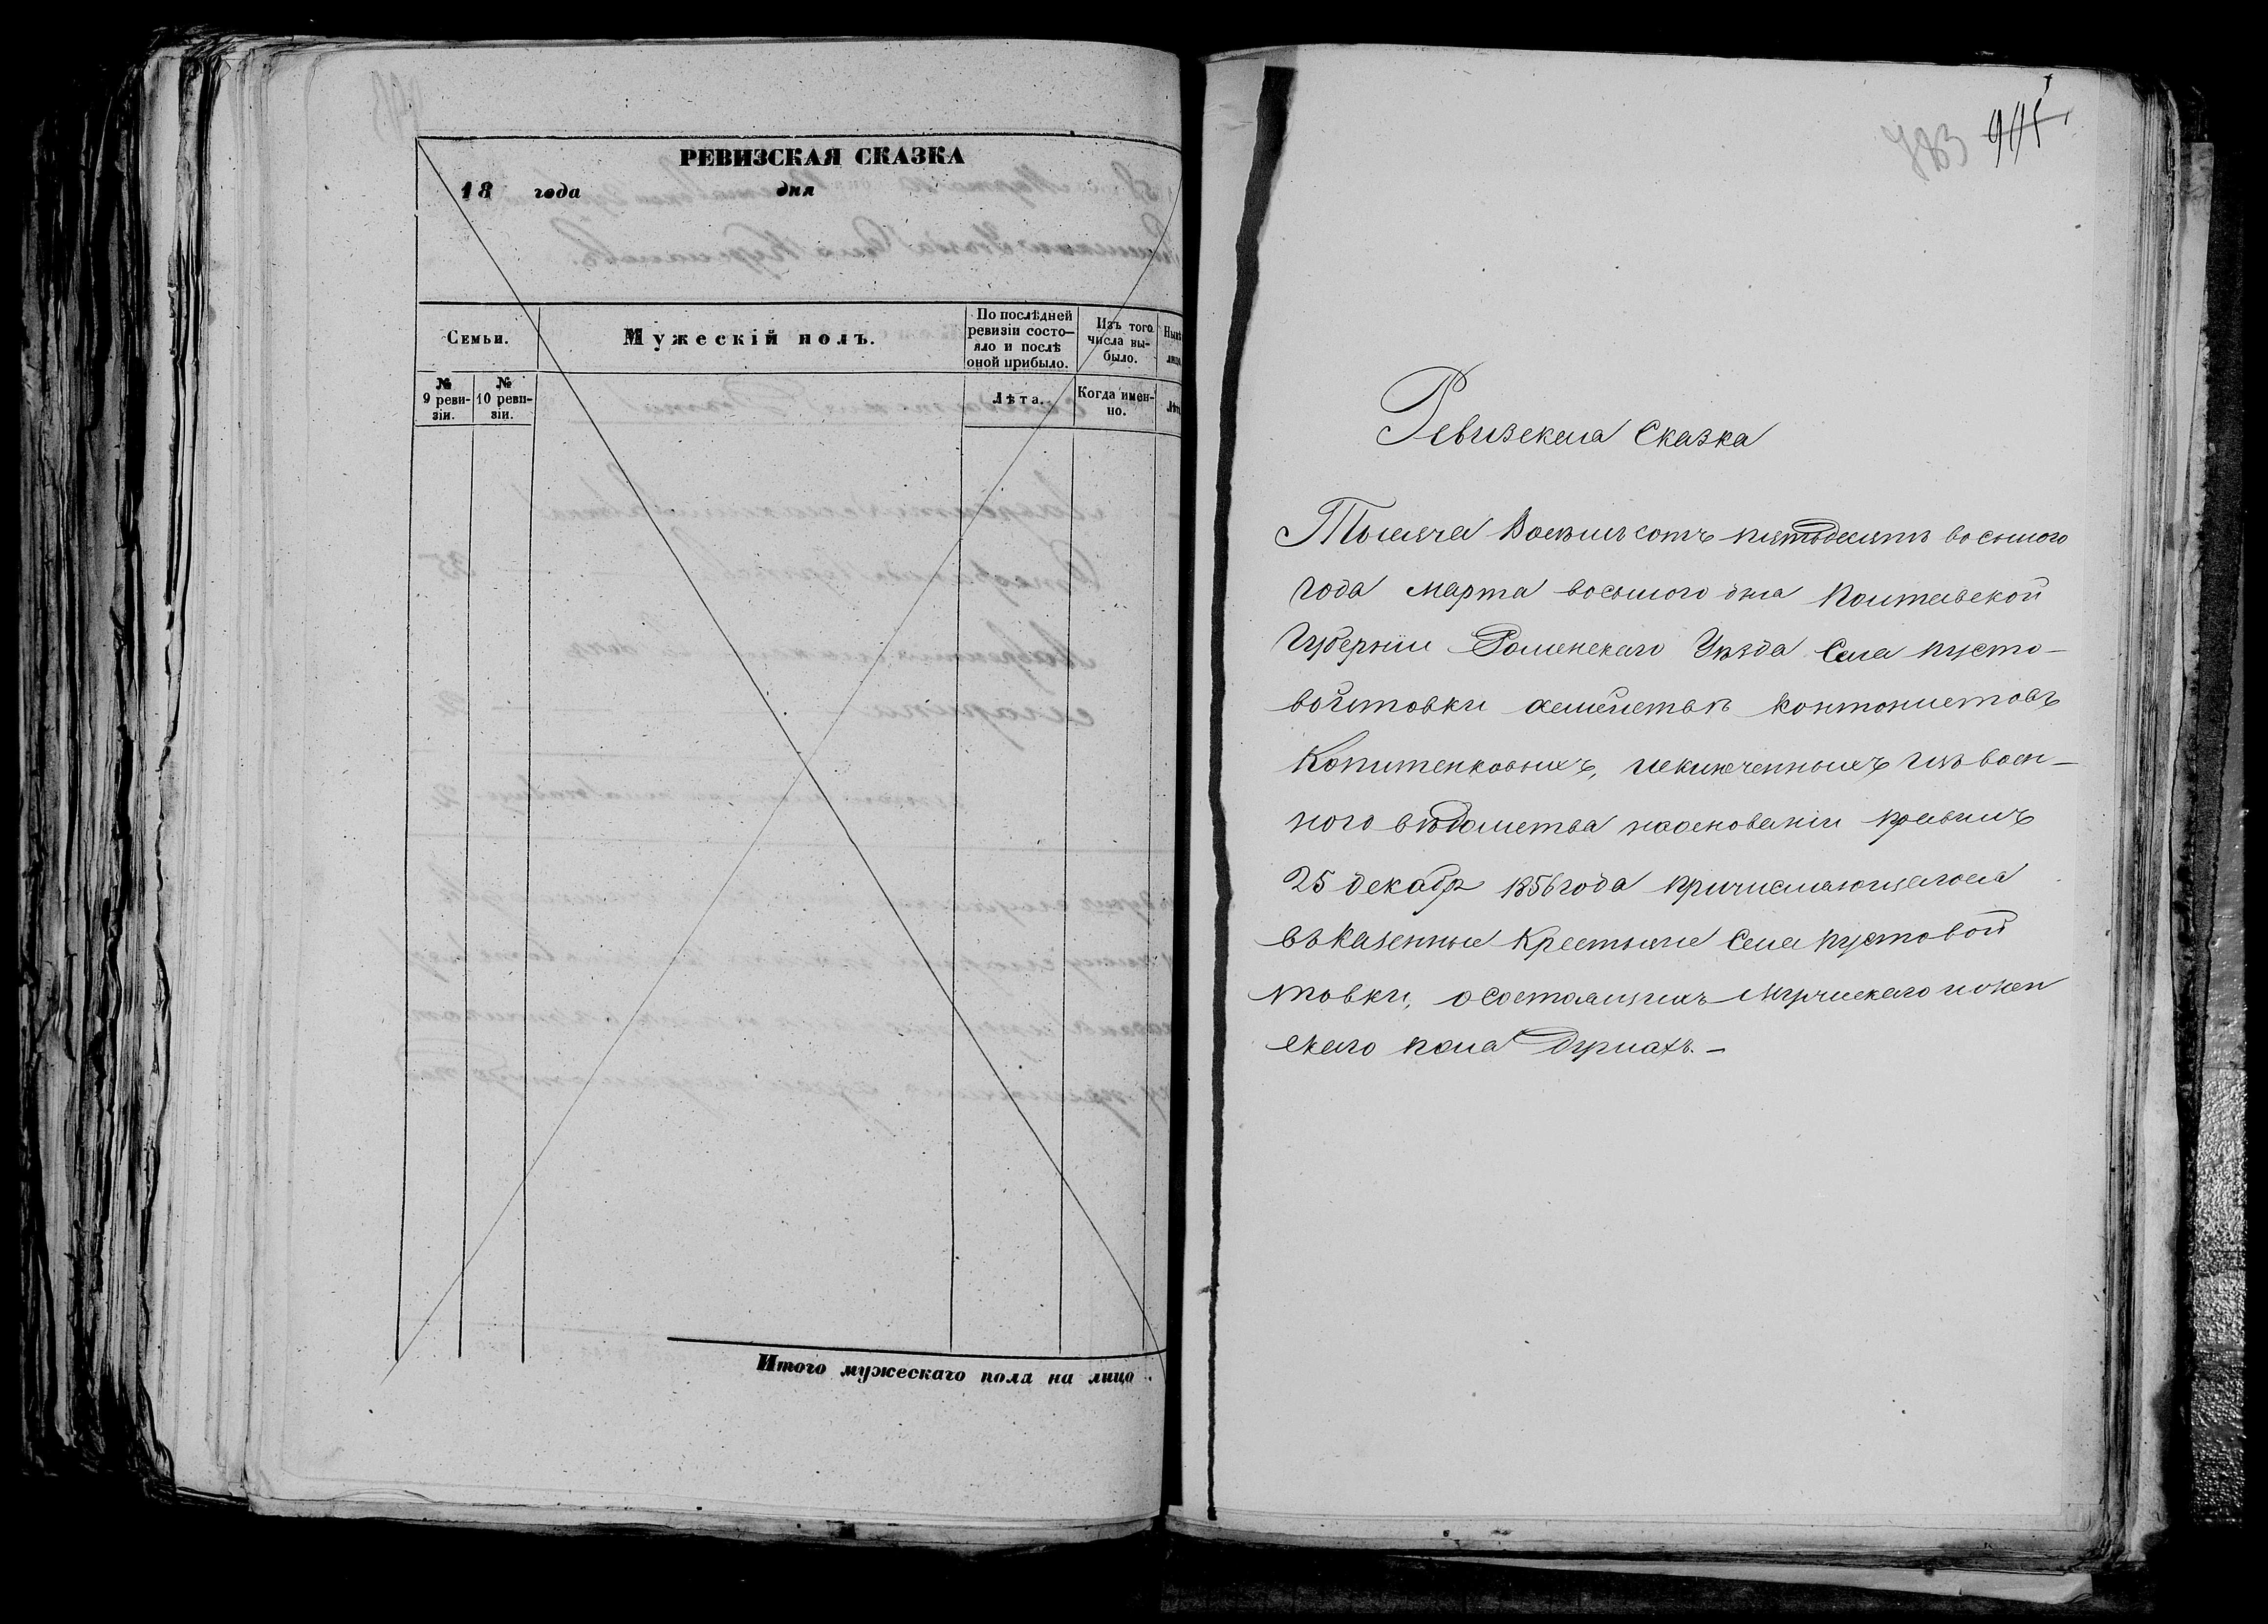 РЕВИЗСКАЯ СКАЗКА
18 года дня
Семьи.
Мужескій полъ.
По послѣдней
ревизіи состо-
яло и послѣ
оной прибыло.
Изъ того
числа вы-
было.
№
9 реви-
зіи.
№
10 реви-
зіи.
Лѣта.
Когда имен-
но.
Итого мужескаго пола на лицо
783 915
Ревизская Сказка
Тысяча Восемьсотъ пятьдесятъ восьмого
года Марта восьмого дня Полтавской
Губерніи Роменскаго Уѣзда Села Пусто-
войтовки семействъ кантонистовъ
Копитенковыхъ, исключенныхъ изъ воен-
ного вѣдомства наоснованіи правилъ
25 декабр 1856 года причисляющагося
въ казенные Крестьяне Села Пустовой
товки, о состоящихъ Мужескаго и жен
скаго пола Душахъ. –